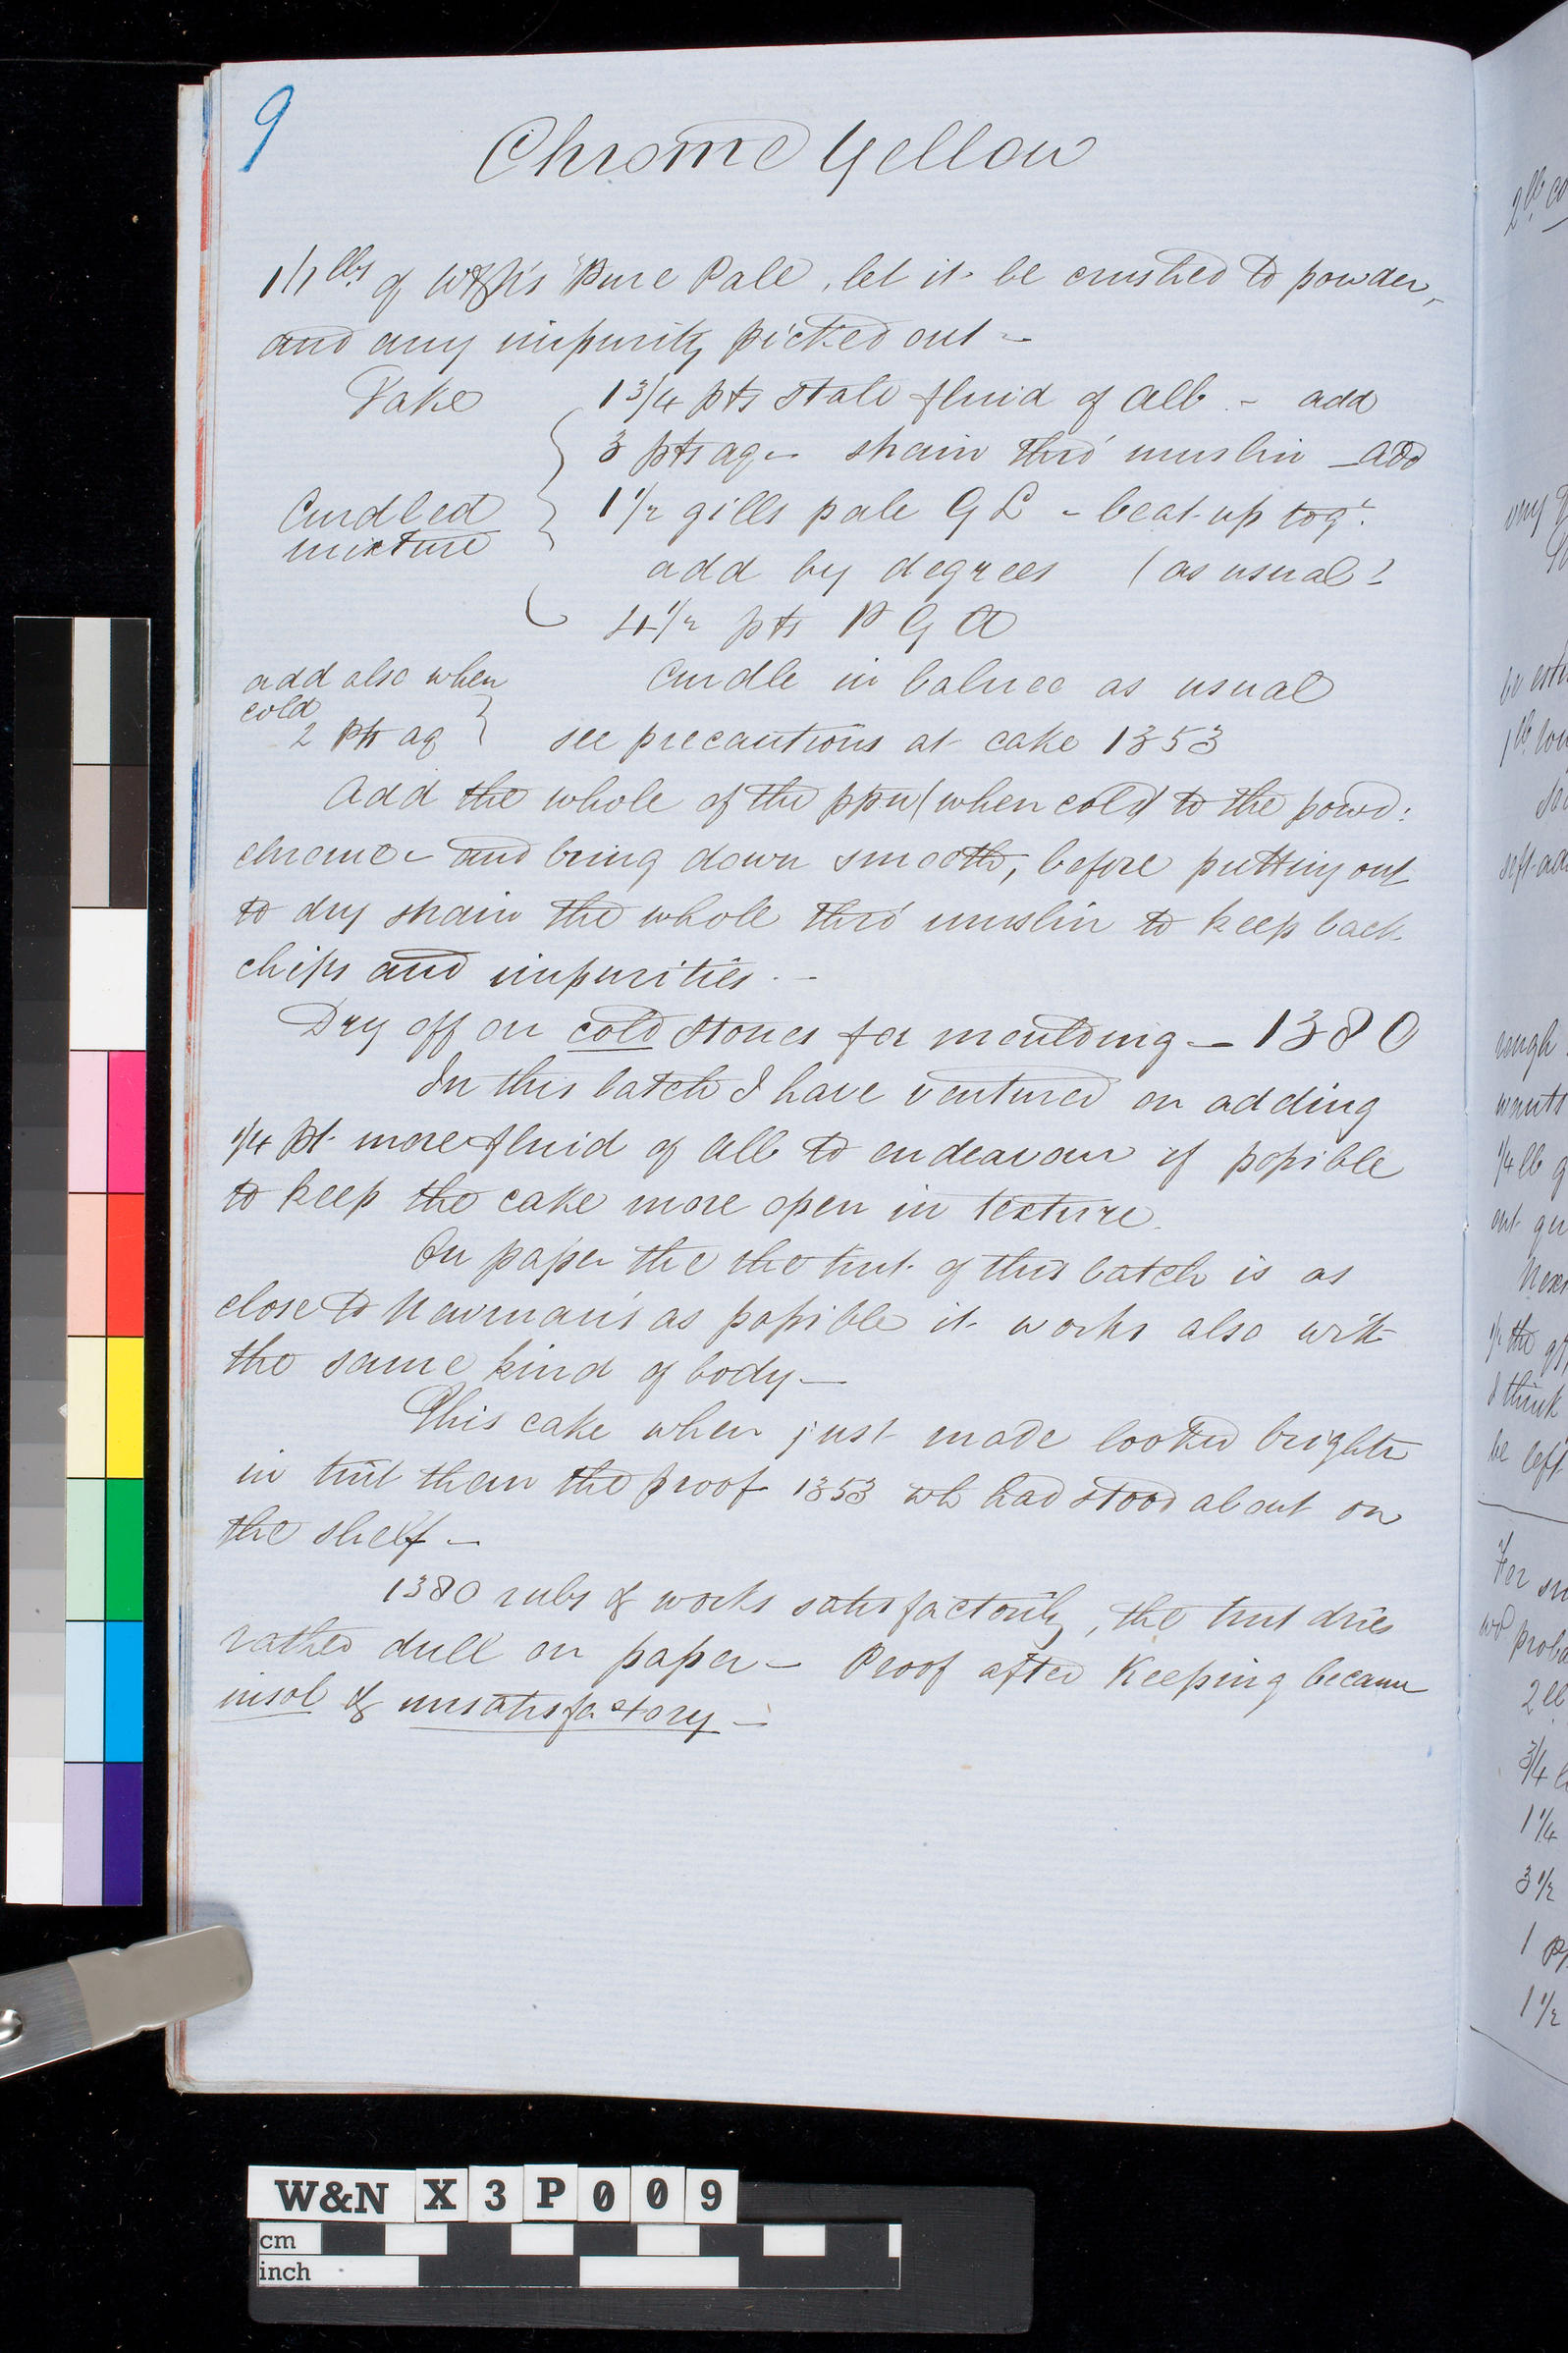 9
Chrome Yellow
11 lbs of W&N's Pure Pale, let it be crushed to powder,
and any impurity picked out -
Take 1 3/4 pts stale fluid of alb. - add
3 pts aq - strain thro' muslin - add
Curdled mixture
1 1/2 gills pale G L - beat up tog:
add by degrees (as usual)
4 1/2 pts P G A
Curdle in balneo as usual
add also when
cold
2 pts aq
see precautions at cake 1353
Add the whole of the ppn (when cold) to the powd:
chrome - and bring down smooth, before putting out
to dry strain the whole thro' muslin to keep back
chips and impurities. -
Dry off on cold stones for moulding - 1380
In this batch I have ventured on adding
1/4 pt more fluid of alb to endeavour if possible
to keep the cake more open in texture.
On paper the the tint of this batch is as
close to Newman's as possible it works also with
the same kind of body -
This cake when just made looked brighter
in tint than the proof 1353 wh had stood about on
the shelf -
1380 rubs & works satisfactorily, the tint dries
rather dull on paper - Proof after Keeping became
insol & unsatisfactory -
very
1/4 lb
wants
rough
I think
be left
For
2 lb
3/4
1 1/4
3 1/2
1
1 1/2
W&N X 3 P 0 0 9
cm
inch